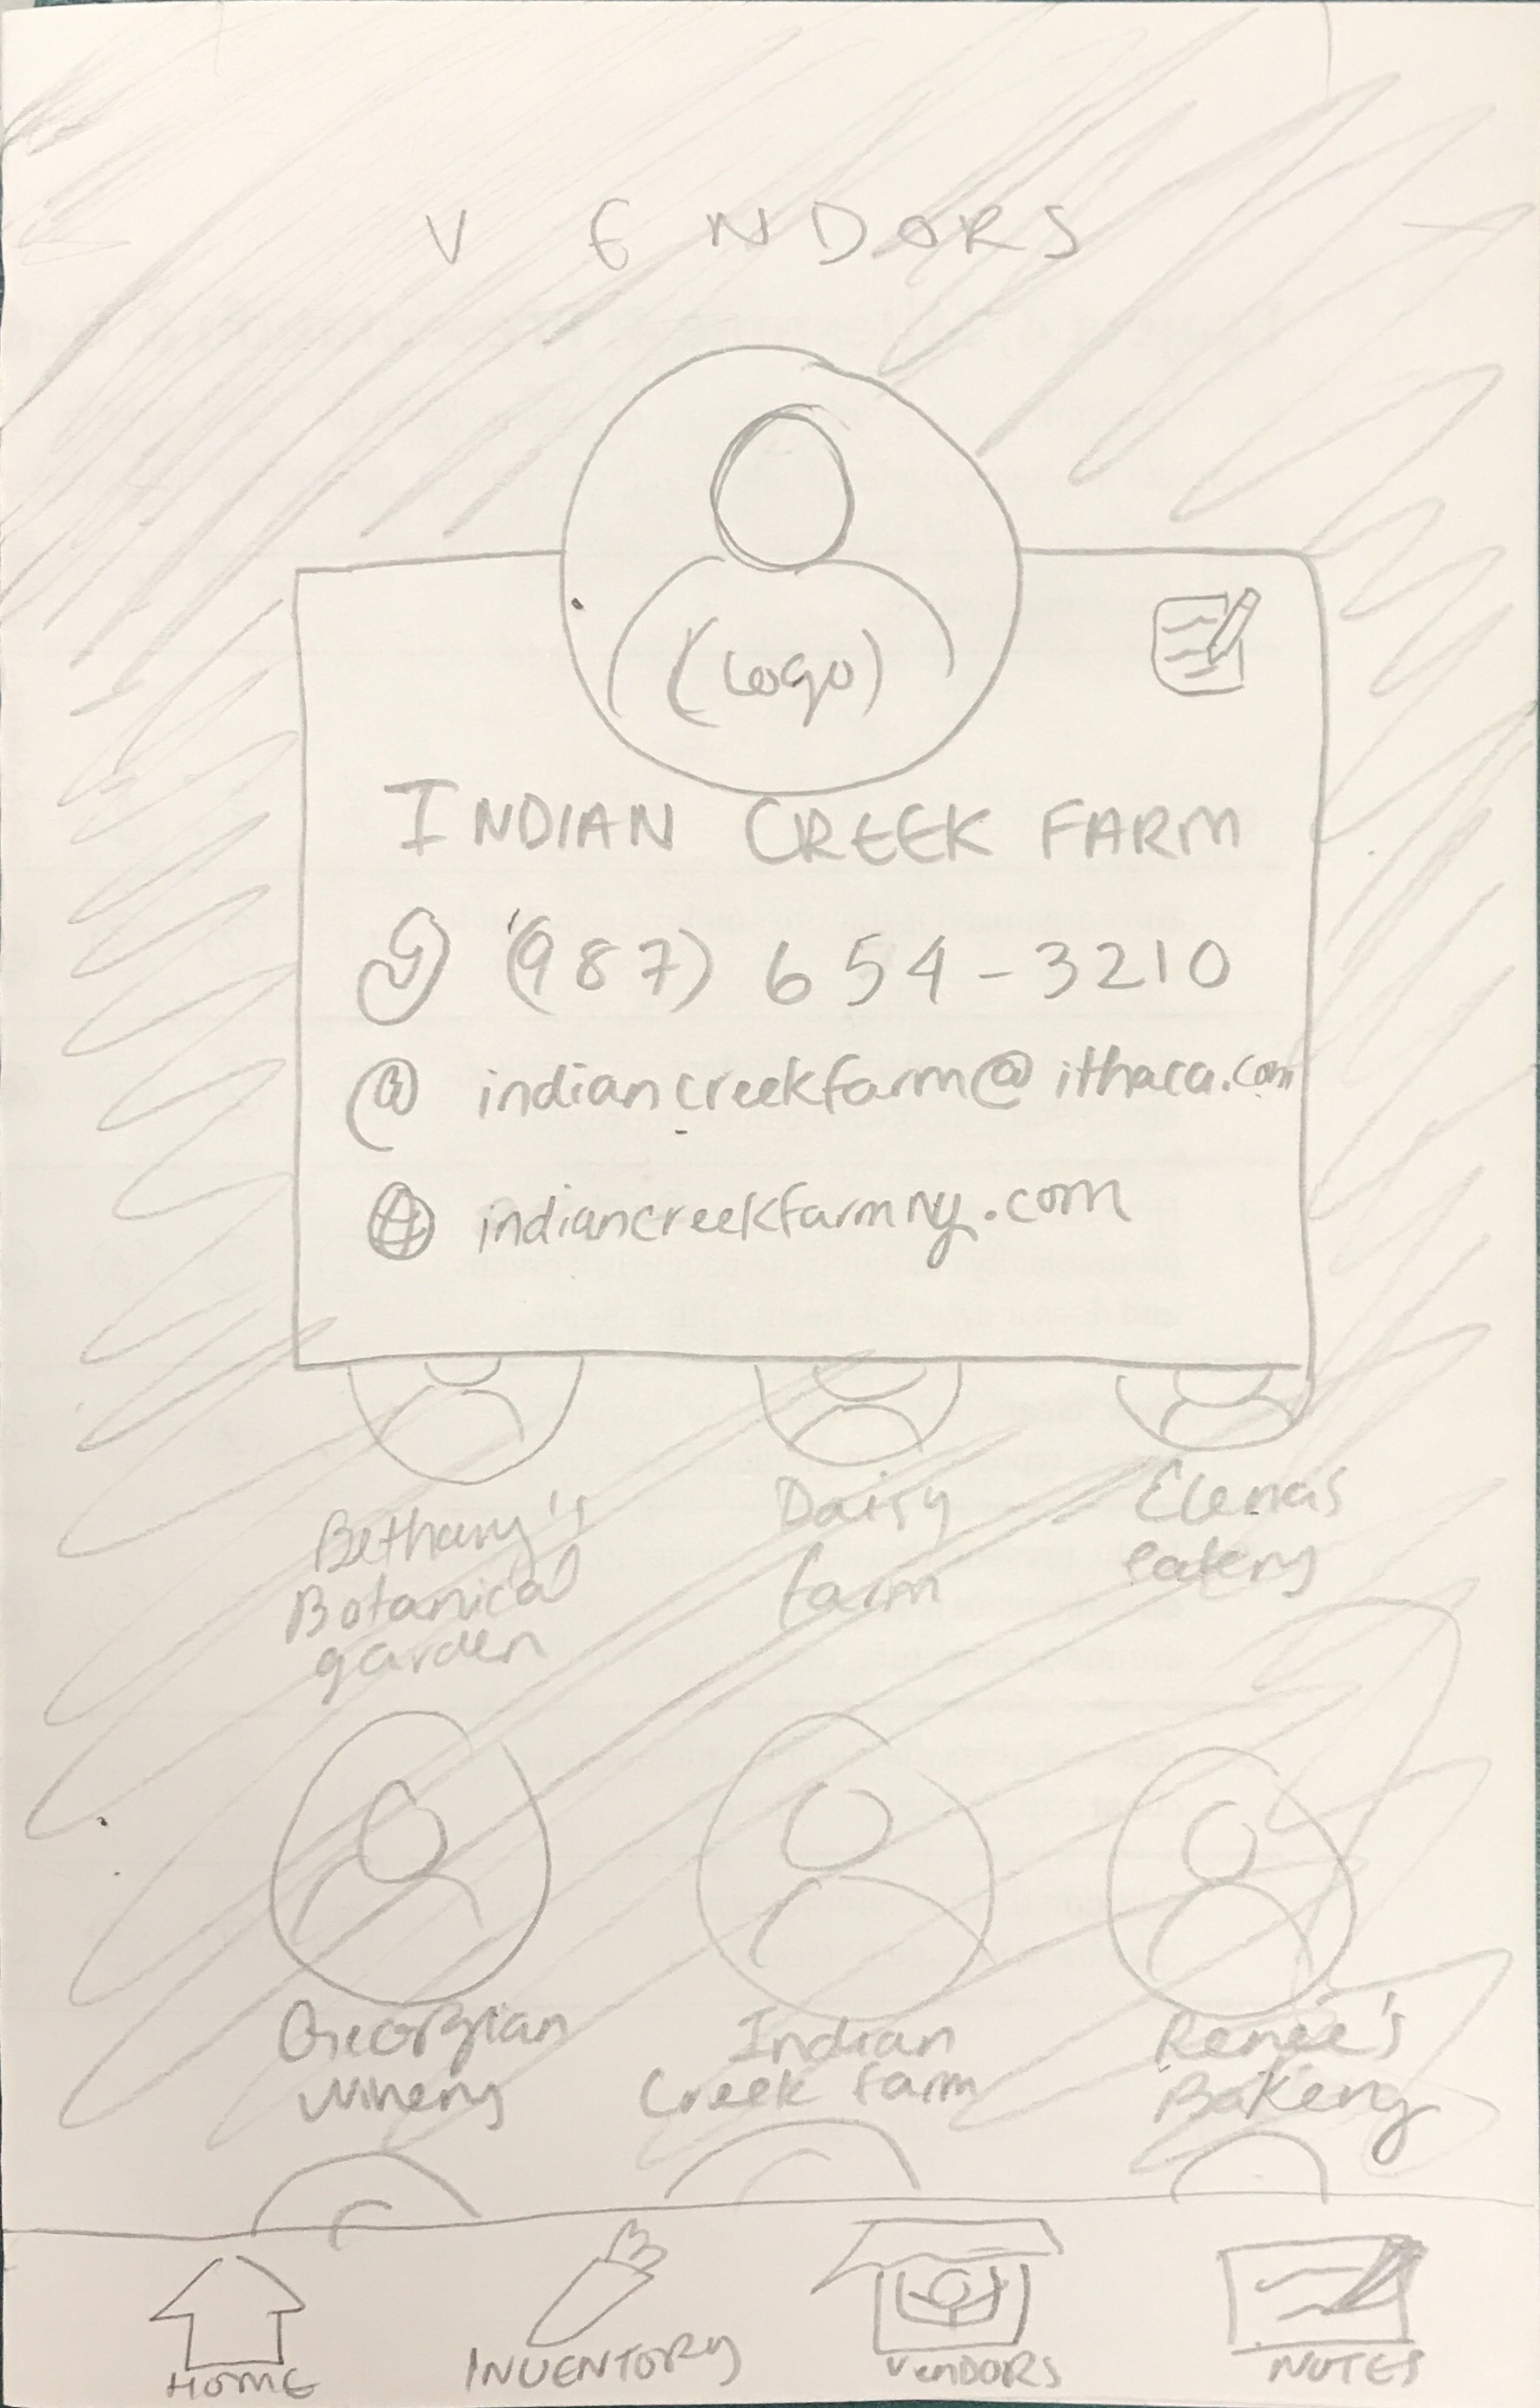 VENDORS
(Logo)
INDIAN CREEK FARM
(987) 654-3210
@ indiancreekfarm@ithaca.com
indiancreekfarmny.com
Bethany's
Botanical
garden
Daisy
farm
Elena's
eatery
Georgian
winery
Indian
Creek farm
Renee's
Bakery
HOME
INVENTORY
VENDORS
NOTES